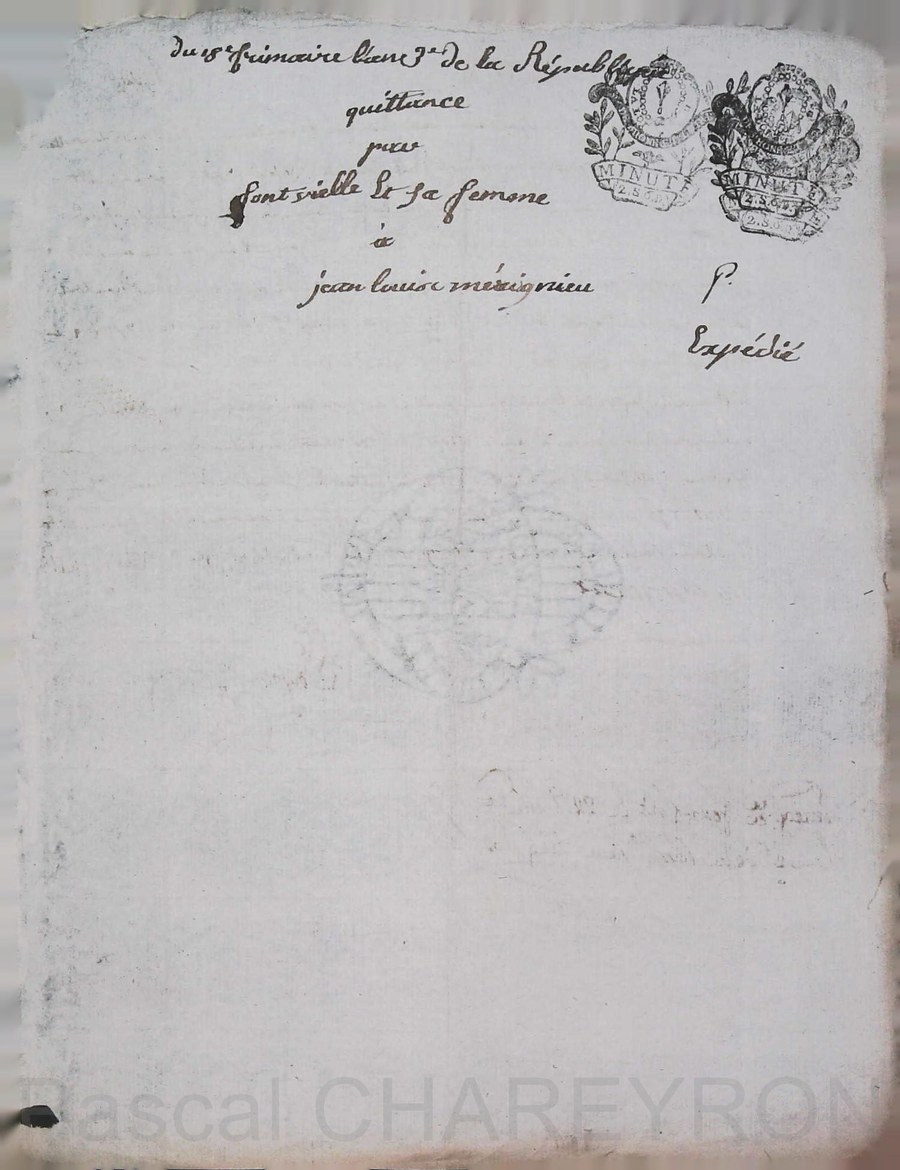 du 18e frimaire l'an 3e de la République
quittance
par
fontvielle Et sa femme
à
jean louis mérignieu
P.
Expédié
MINUTE
2.S.6
MINUTE
2.S.6
2.S.6
Pascal CHAREYRON